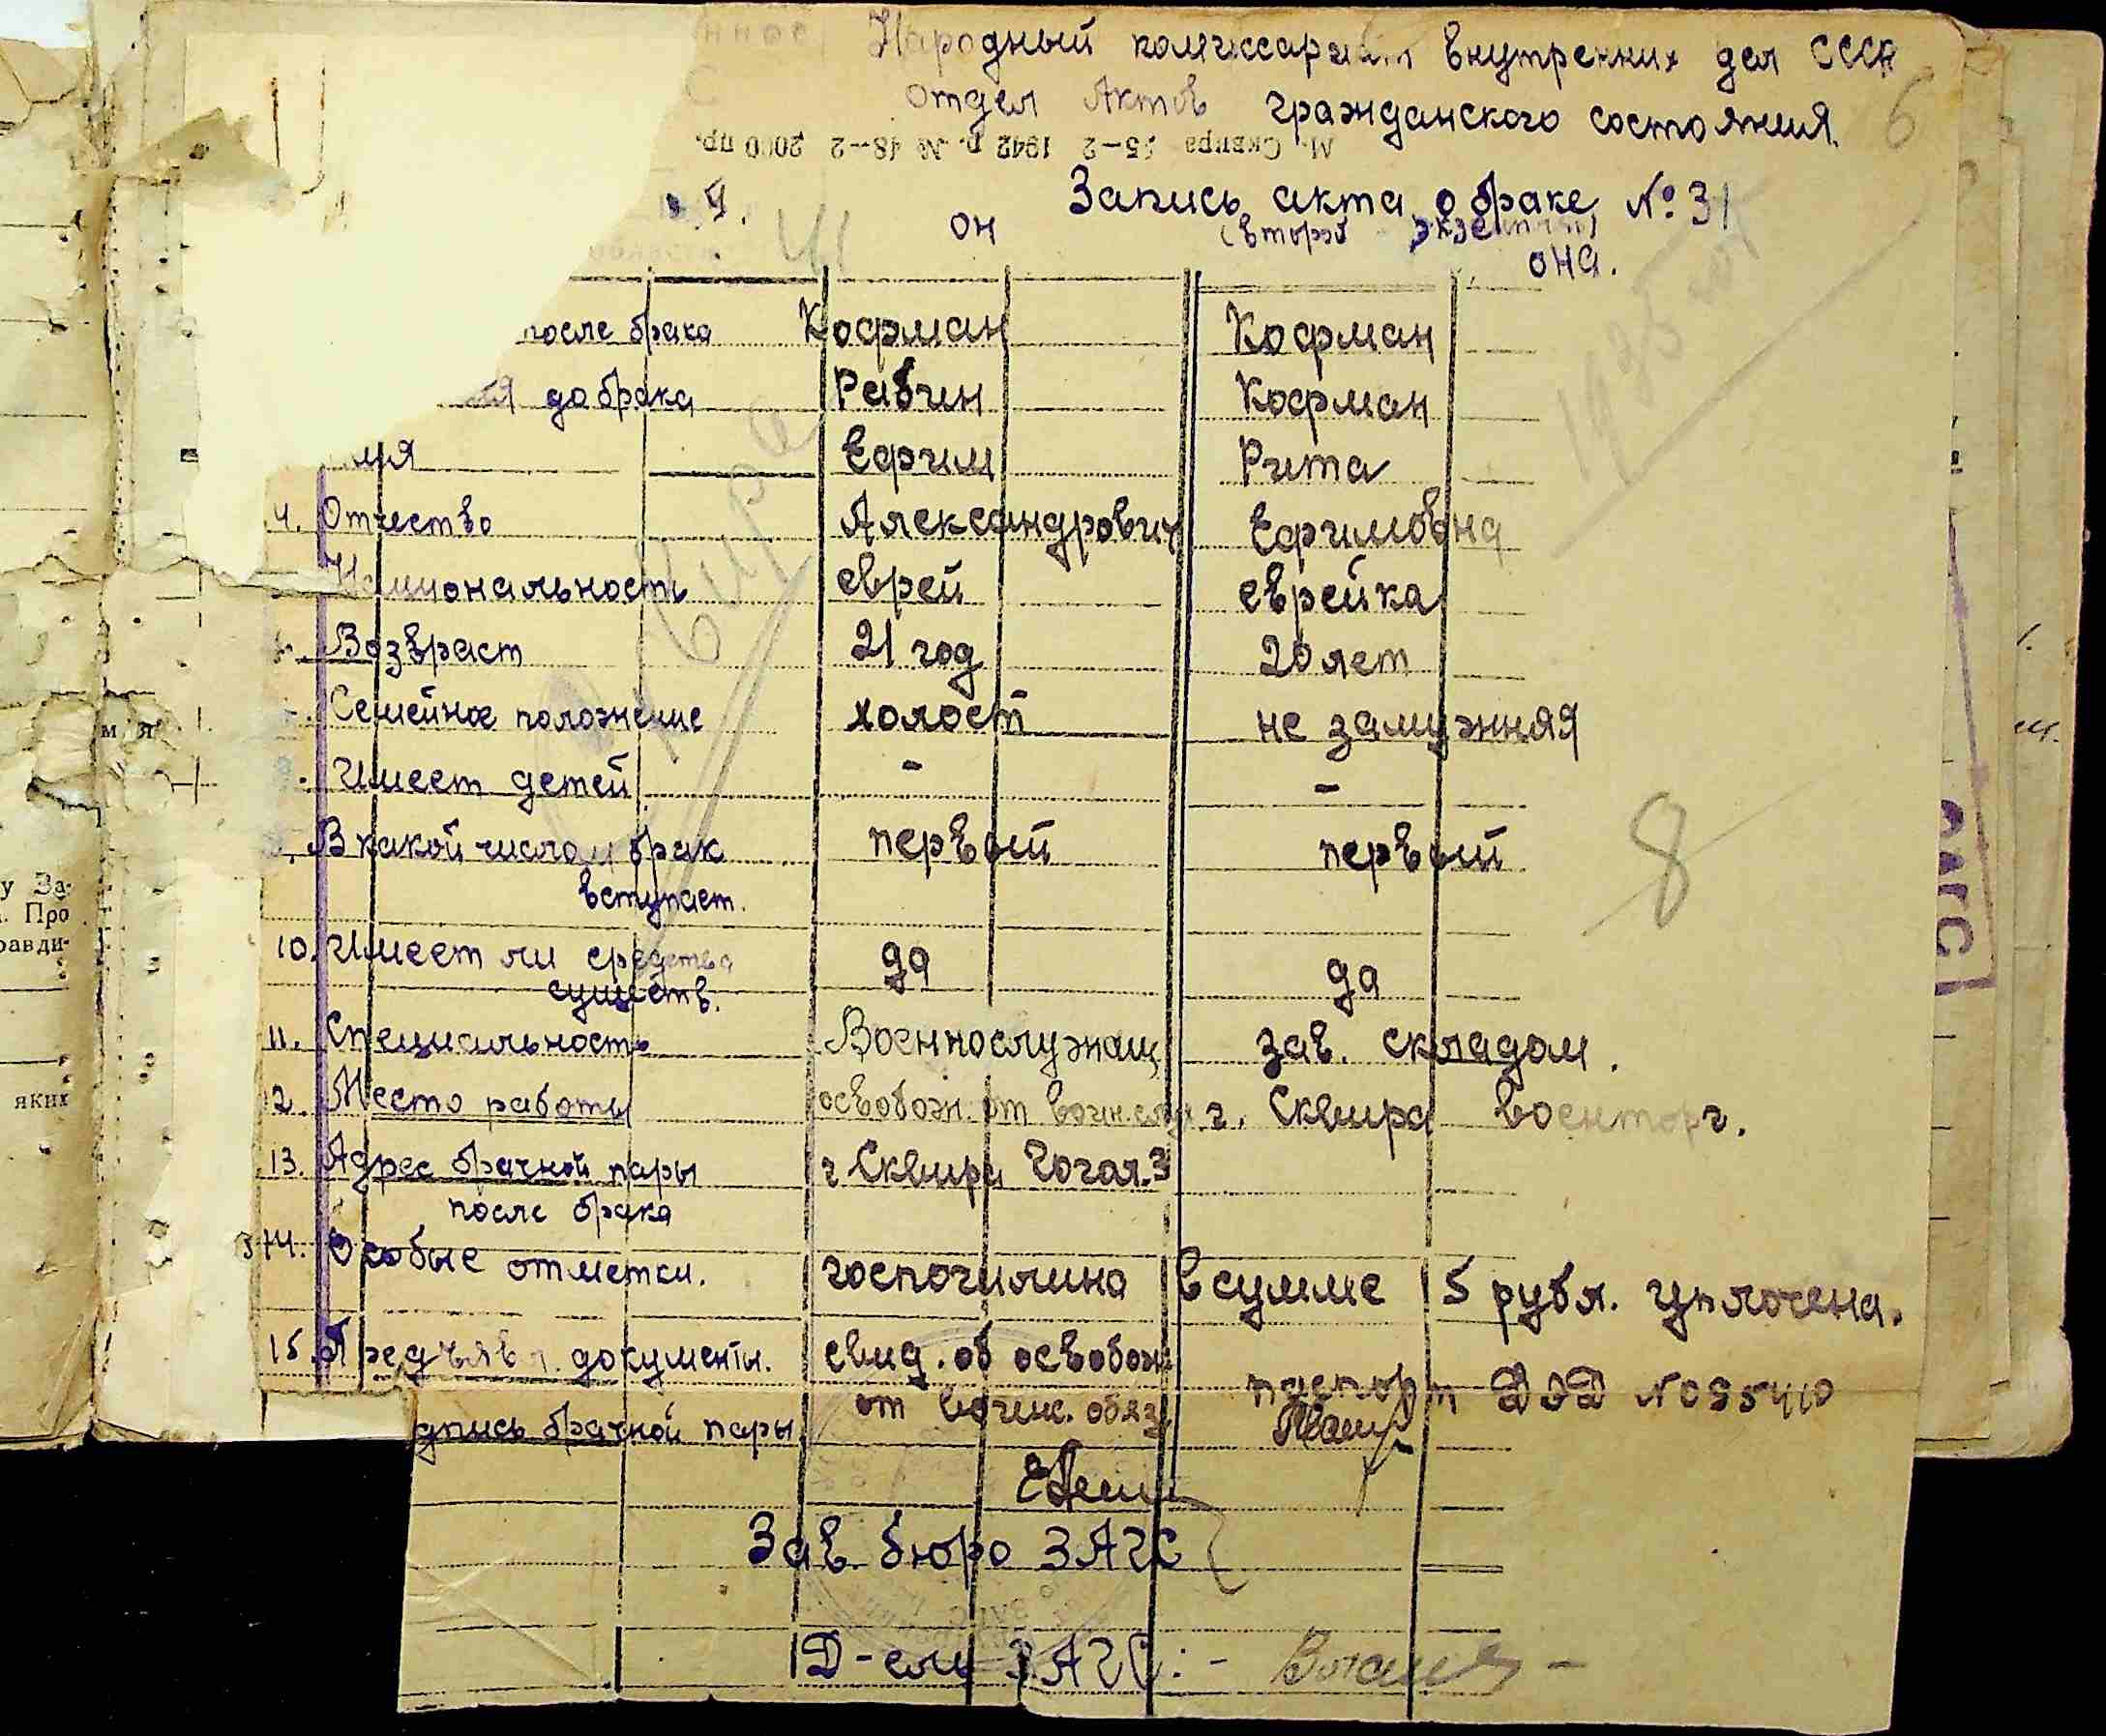 Народный комиссариат внутренних дел СССР
Отдел Актов гражданского состояния.
6
М. Сквира 25—2 1942 р. № 48—2 2000 пр.
Запись акта о браке № 31
(второй экземпляр)
он она.
после брака Кофман Кофман
до брака Рабин Кофман
мя Ефим Рита
4. Отчество Александрович Ефимовна
Национальность еврей еврейка
Возвраст 21 год 20 лет
Семейное положение холост не замужняя
Имеет детей - -
В какой числом брак первый первый
вступает.
8
10. Имеет ли средства да да
существ.
11. Специальность Военнослужащ зав. складом.
12. Место работы освобож. от воин. г. Сквира военторг.
13. Адрес брачной пары г Сквира Гогол. 3
после брака
14. Особые отметки. госпочилина в сумме 15 рубл. уплочена.
15. Предъявл. документы. свид. об освобож паспорт
от воинс. обяз № 095410
дпись брачной пары
Зав. бюро ЗАГС
Д-ель ЗАГС: -
м я
у За-
Про
равди-
яких
ЗАГС